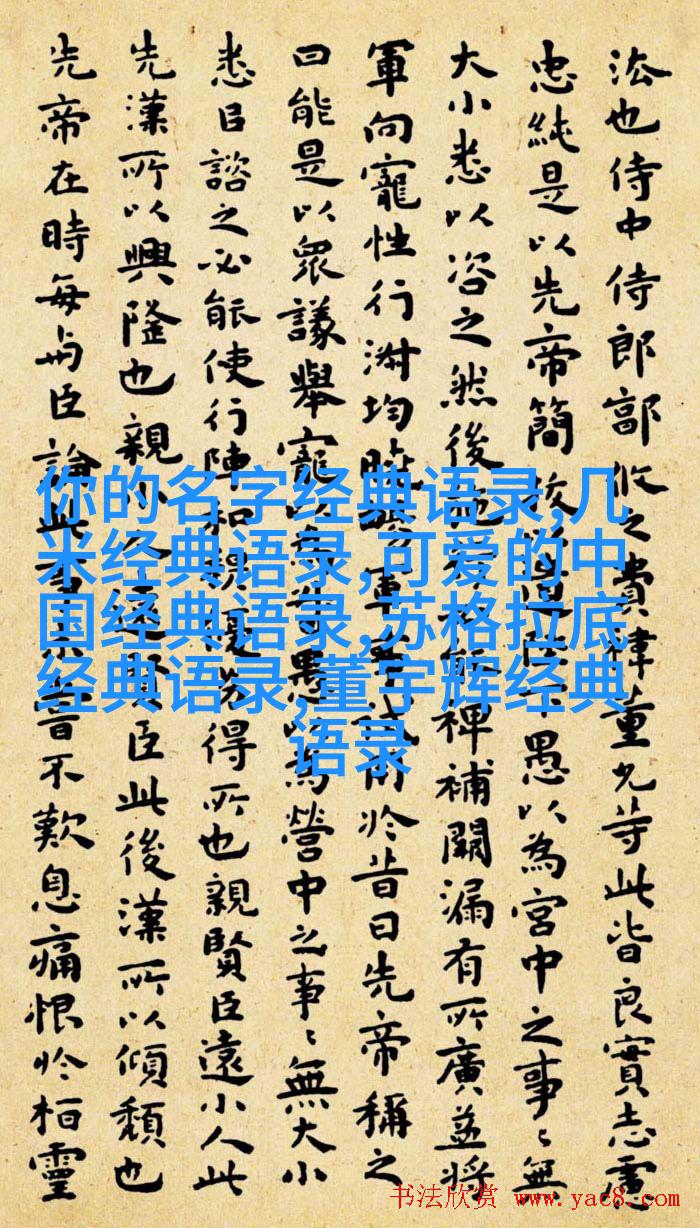 法也侍中侍郎郭攸之費禕董允等此皆良實志慮
忠純是以先帝簡拔以遺陛下愚以為宮中之事〻無
大小悉以咨之然後施行必能裨補闕漏有所廣益將
軍向寵性行淑均曉暢軍事試用於昔日先帝稱之
曰能是以眾議舉寵以為督愚以為營中之事〻無大小
悉以諮之必能使行陣和穆優劣得所也親賢臣遠小人此
先漢所以興隆也親小人遠賢臣此後漢所以傾頹也
先帝在時每與臣論此事未嘗不歎息痛恨於桓靈
你的名字经典语录,几
米经典语录,可爱的中
国经典语录,苏格拉底
经典语录,董宇辉经典
语录
书法欣赏 www.yac8.com